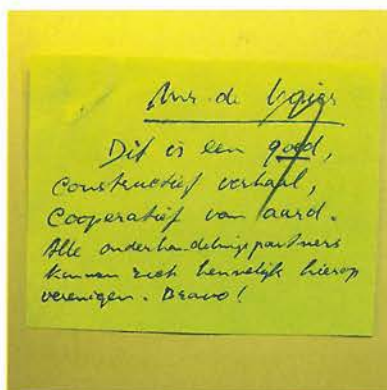 de
Dit is een goed,
constructief verhaal,
Cooperatief van aard.
Alle onderhandelingspartners
kunnen zich hierop
verenigen. Bravo!